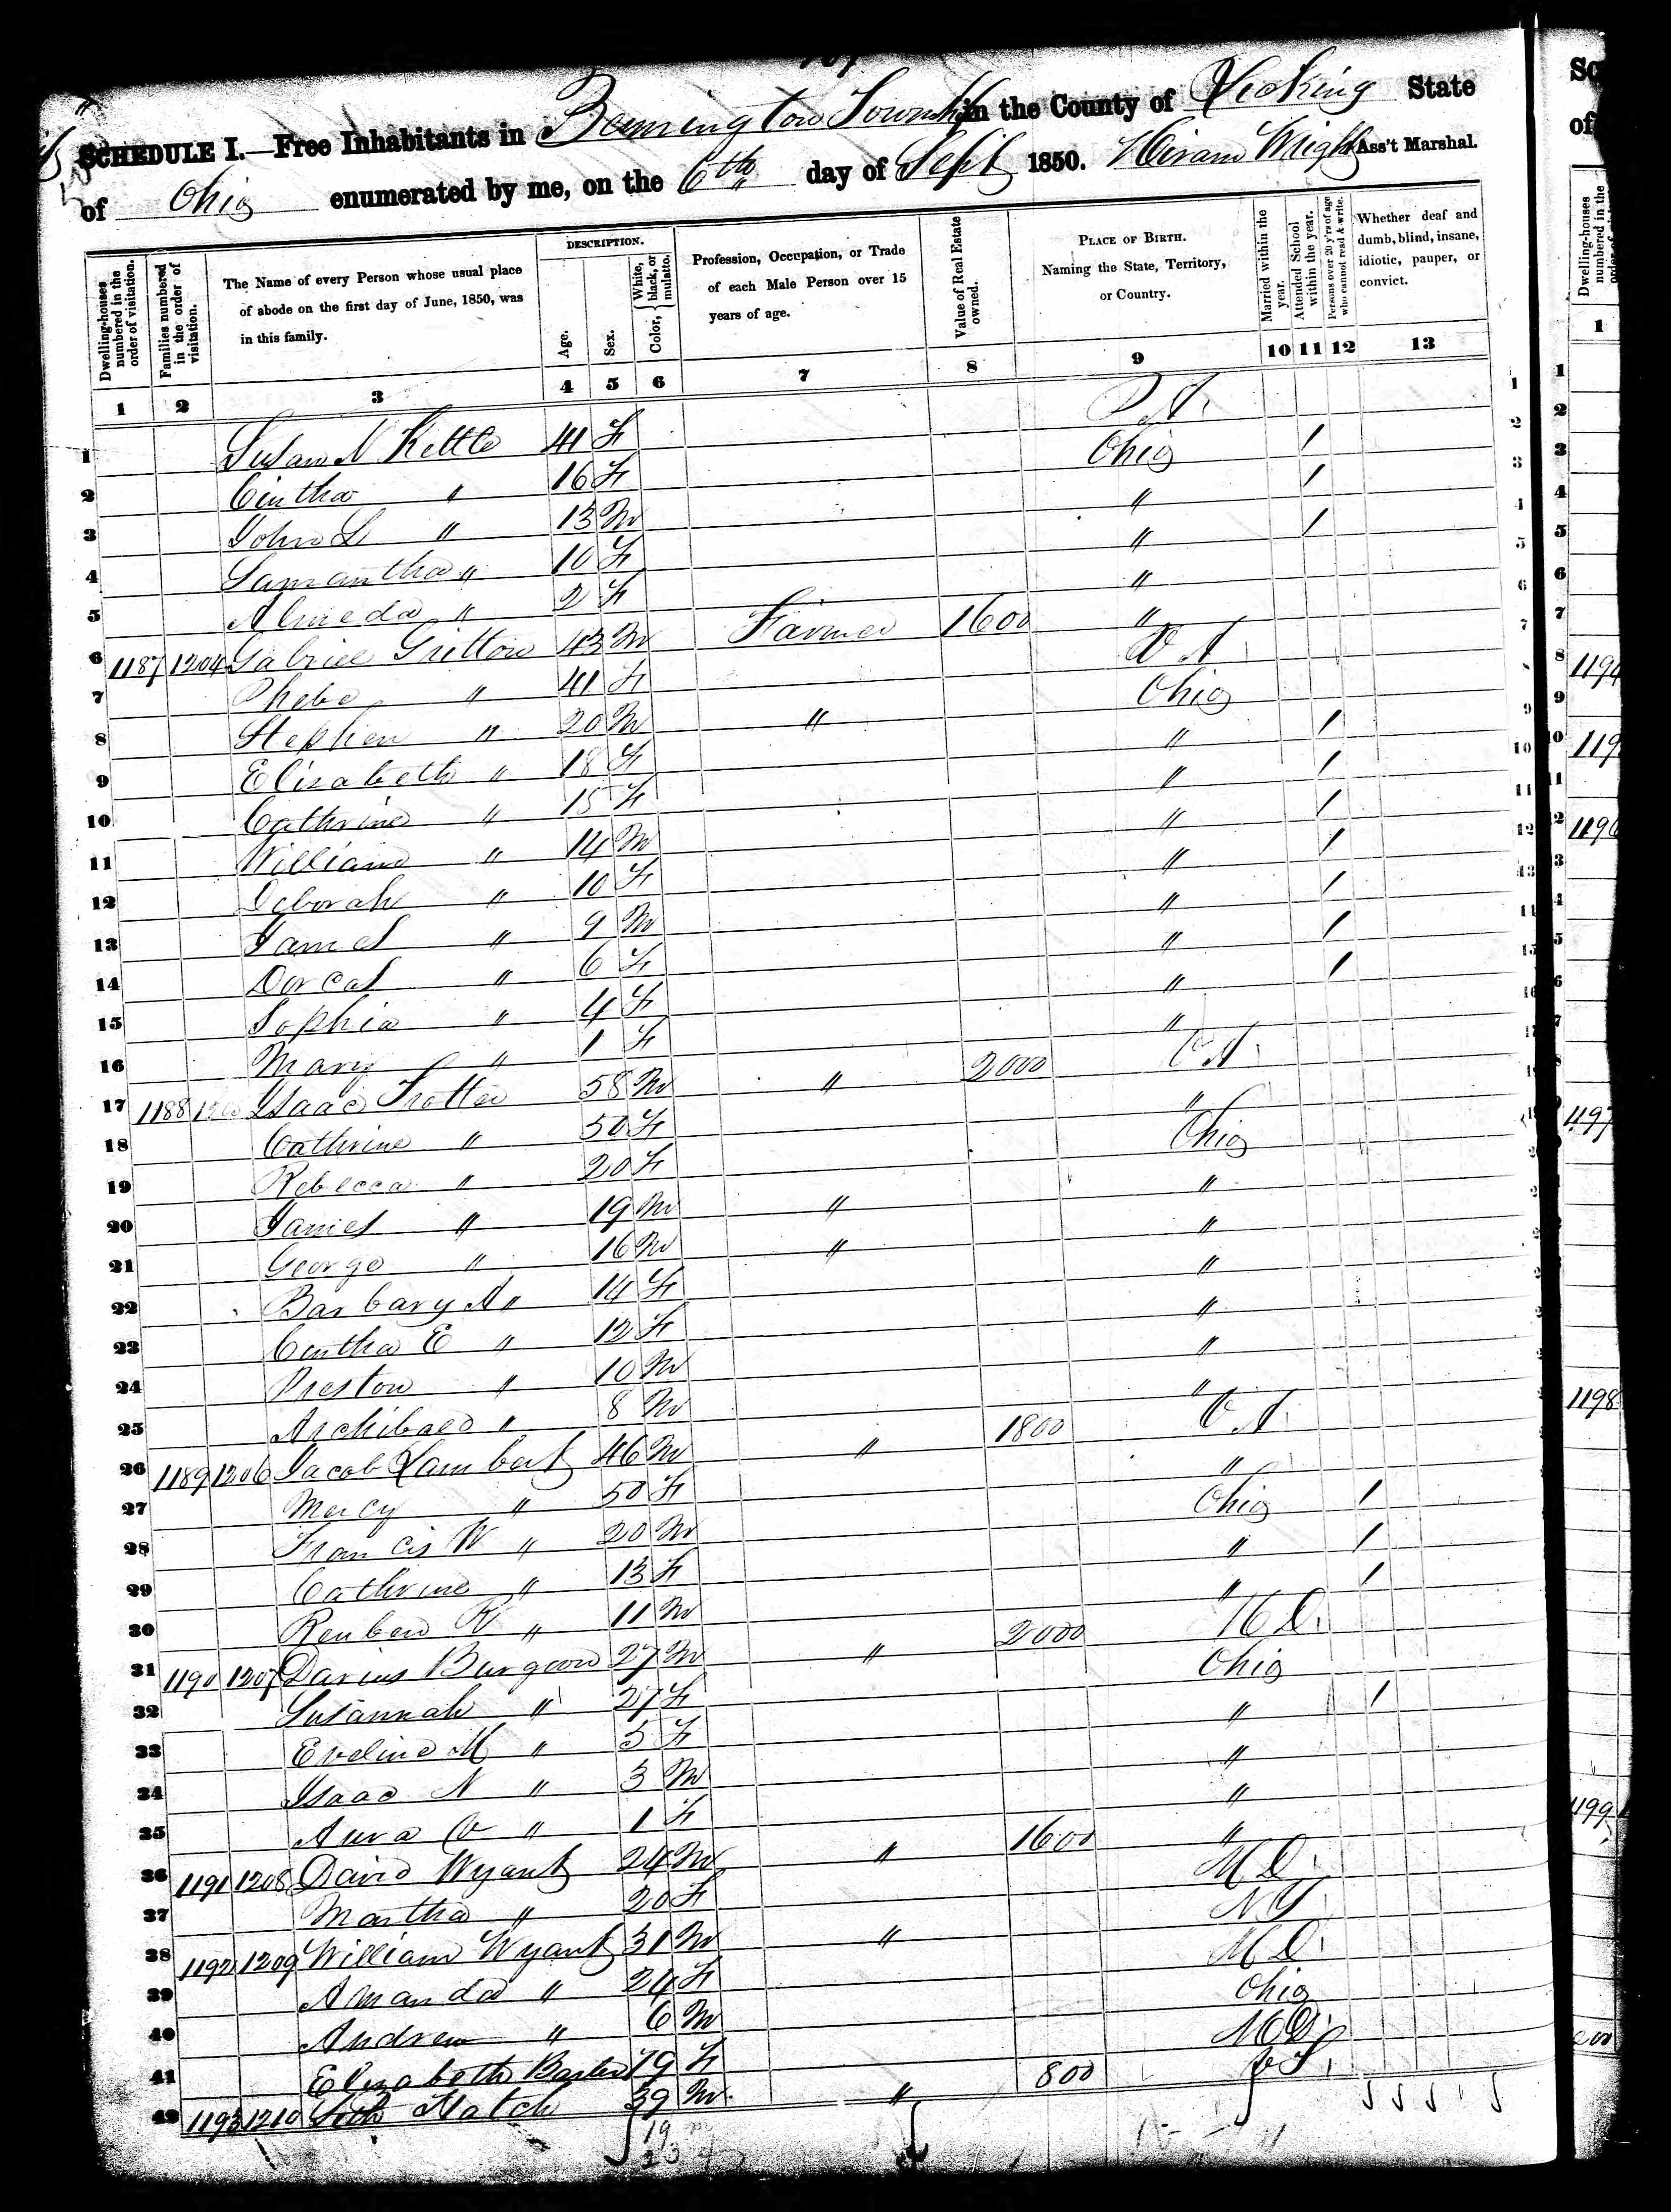 SCHEDULE I.—Free Inhabitants in Bennington Township in the County of Licking State
of Ohio enumerated by me, on the 6th day of Sept 1850. Hiram Wright Ass't Marshal.
Dwelling-houses numbered in the order of visitation.
Families numbered in the order of visitation.
The Name of every Person whose usual place of abode on the first day of June, 1850, was in this family.
DESCRIPTION.
Age.
Sex.
Color, White, black, or mulatto.
Profession, Occupation, or Trade of each Male Person over 15 years of age.
Value of Real Estate owned.
PLACE OF BIRTH. Naming the State, Territory, or Country.
Married within the year.
Attended School within the year.
Persons over 20 y'rs of age who cannot read & write.
Whether deaf and dumb, blind, insane, idiotic, pauper, or convict.
1 2 3 4 5 6 7 8 9 10 11 12 13
1 Susan N Kettle 41 F PA 1
2 Cintha " 16 F Ohio / 2
3 John L " 13 M " / 3
4 Samantha " 10 F " / 4
5 Almeda " 2 F " 5
6 1187 1204 Gabriel Gritton 43 M Farmer 1600 " 6
7 Phebe " 41 F VA 7
8 Stephen " 20 M " Ohio
9 Elizabeth " 18 F " / 9
10 Cathrine " 15 F " / 10
11 William " 14 M " / 11
12 Deborah " 10 F " / 12
13 James " 9 M " / 13
14 Dorcas " 6 F " / 14
15 Sophia " 4 F " / 15
16 Mary " 1 F " 16
17 1188 Isaac Trotter 58 M " 2000 VA
18 Cathrine " 50 F "
19 Rebecca " 20 F Ohio
20 James " 19 M " "
21 George " 16 M " "
22 Barbary A " 14 F "
23 Cintha E " 12 F "
24 Preston " 10 M "
25 Archibald " 8 M "
26 1189 1206 Jacob Lambert 46 M " 1800 VA
27 Mercy " 50 F "
28 Francis W " 20 M Ohio /
29 Cathrine " 13 F " /
30 Reuben " 11 M " /
31 1190 1207 Darius Burgoon 27 M " 2000 MD
32 Susannah " 27 F Ohio
33 Eveline M " 5 F " /
34 Isaac N " 3 M "
35 Aura V " 1 F "
36 1191 1208 David Wyant 24 M " 1600 "
37 Martha " 20 F MD
38 1192 1209 William Wyant 31 M " NY
39 Amanda " 24 F MD
40 Andrew " 6 M Ohio
41 Elizabeth 79 F MD
42 1193 1210 Hatch 39 M " 800
1
2
3
4
5
6
7
8 1194
9
10 119
11
12 1196
1197
1198
1199